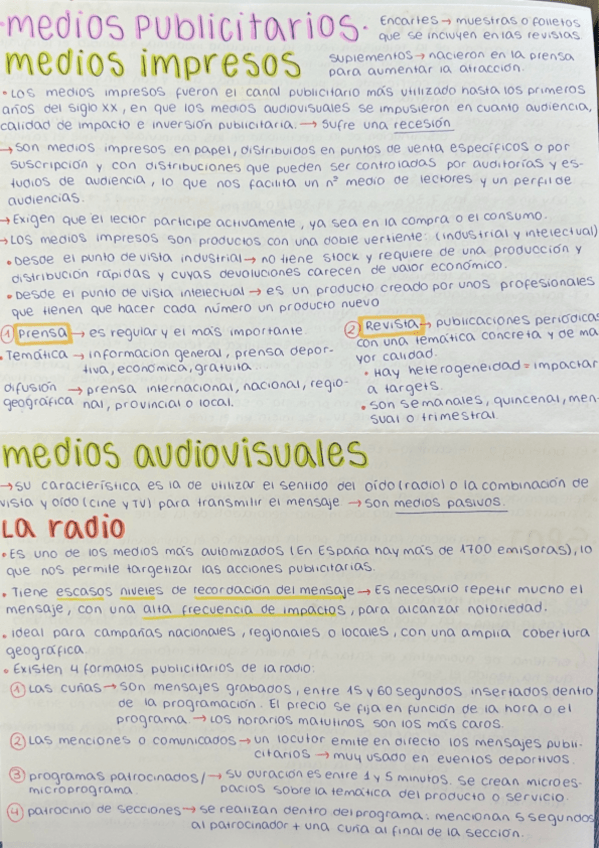 medios publicitarios.
Encartes → muestras o folletos
que se incluyen en las revistas
medios impresos
suplementos → nacieron en la prensa
para aumentar la atracción.
• Los medios impresos fueron el canal publicitario más utilizado hasta los primeros
años del siglo XX, en que los medios audiovisuales se impusieron en cuanto audiencia,
calidad de impacto e inversión publicitaria. → sufre una recesión
→ son medios impresos en papel, distribuidos en puntos de venta específicos o por
suscripción y con distribuciones que pueden ser controladas por auditorías y es-
tudios de audiencia, lo que nos facilita un nº medio de lectores y un perfil de
audiencias.
→ Exigen que el lector participe activamente, ya sea en la compra o el consumo.
→ Los medios impresos son productos con una doble vertiente: (industrial y intelectual)
• Desde el punto de vista industrial → no tiene stock y requiere de una producción y
distribución rápidas y cuyas devoluciones carecen de valor económico.
• Desde el punto de vista intelectual → es un producto creado por unos profesionales
que tienen que hacer cada número un producto nuevo
① Prensa → es regular y el más importante.
• Temática → información general, prensa depor-
tiva, económica, gratuita.
difusión → prensa internacional, nacional, regio-
geográfica nal, provincial o local.
② Revista → publicaciones periódicas
con una temática concreta y de ma
yor calidad.
• Hay heterogeneidad = impactar
a targets.
• son semanales, quincenal, men-
sual o trimestral.
medios audiovisuales
→ su característica es la de utilizar el sentido del oído (radio) o la combinación de
vista y oído (cine y TV) para transmitir el mensaje → son medios pasivos.
La radio
• Es uno de los medios más automizados (En España hay más de 1700 emisoras), lo
que nos permite targetizar las acciones publicitarias.
• Tiene escasos niveles de recordación del mensaje → Es necesario repetir mucho el
mensaje, con una alta frecuencia de impactos, para alcanzar notoriedad.
• Ideal para campañas nacionales, regionales o locales, con una amplia cobertura
geográfica.
• Existen 4 formatos publicitarios de la radio:
① Las cuñas → son mensajes grabados, entre 15 y 60 segundos insertados dentro
de la programación. El precio se fija en función de la hora o el
programa → Los horarios matutinos son los más caros.
② Las menciones o comunicados → un locutor emite en directo los mensajes publi-
citarios → muy usado en eventos deportivos.
③ programas patrocinados/ → su duración es entre 1 y 5 minutos. se crean microes-
microprograma. pacios sobre la temática del producto o servicio.
④ patrocinio de secciones → se realizan dentro del programa: mencionan 5 segundos
al patrocinador + una cuña al final de la sección.